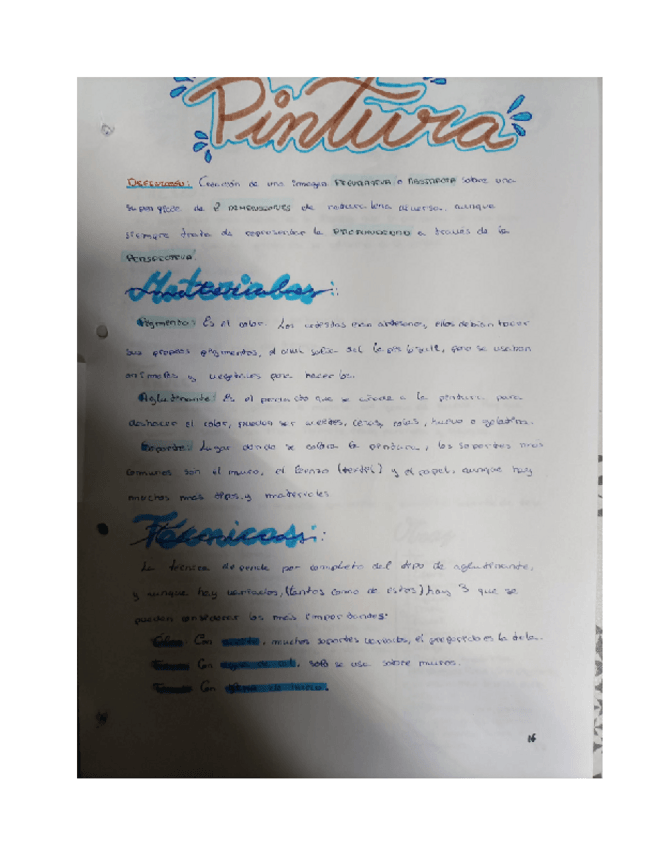 Pintura
DEFINICIÓN: Creación de una imagen FIGURATIVA o ABSTRACTA sobre una
superficie de 2 DIMENSIONES de naturaleza diversa, aunque
siempre trata de representar la a través de la
PERSPECTIVA.
Materiales:
Pigmento: Es el color. Los artistas eran artesanos, ellos debían hacer
sus propios pigmentos, el azul salía del lapislázuli, pero se usaban
animales y vegetales para hacerlos.
Aglutinante: Es el producto que se añade a la pintura para
deshacer el color, pueden ser aceites, ceras, colas, huevo o gelatina.
Soporte: Lugar donde se coloca la pintura, los soportes más
comunes son el muro, el lienzo (textil) y el papel, aunque hay
muchos más tipos y materiales
Técnicas:
La técnica depende por completo del tipo de aglutinante,
y aunque hay variados, (tantos como de estos) hay 3 que se
pueden considerar los más importantes:
Óleo: Con aceite, muchos soportes variados, el preferido es la tela.
Con agua de cal, solo se usa sobre muros.
Con
16